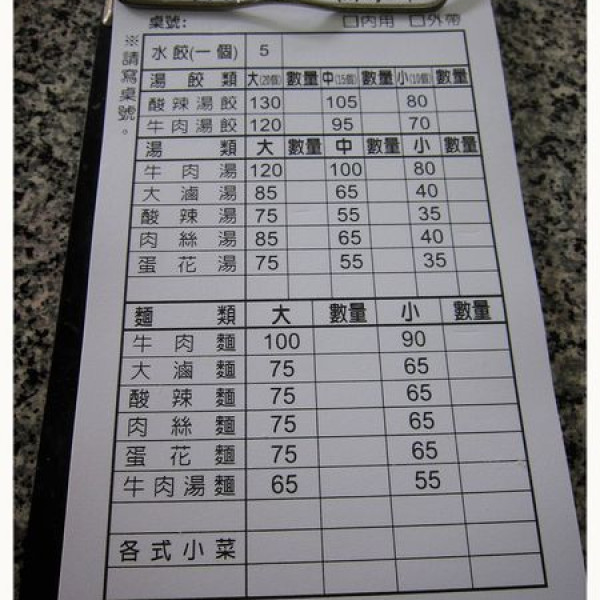 桌號: □內用 □外帶
※請寫桌號。
水餃(一個) 5
湯餃類 大(20個) 數量 中(15個) 數量 小(10個) 數量
酸辣湯餃 130 105 80
牛肉湯餃 120 95 70
湯類 大 數量 中 數量 小 數量
牛肉湯 120 100 80
大滷湯 85 65 40
酸辣湯 75 55 35
肉絲湯 85 65 40
蛋花湯 75 55 35
麵類 大 數量 小 數量
牛肉麵 100 90
大滷麵 75 65
酸辣麵 75 65
肉絲麵 75 65
蛋花麵 75 65
牛肉湯麵 65 55
各式小菜